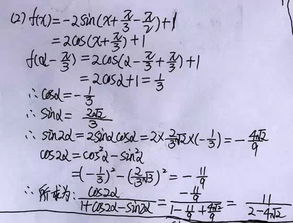 (2) f(x)=-2sin(x+π/3-π/2)+1
=2cos(x+π/3)+1
f(α-π/3)=2cos(α-π/3+π/3)+1
=2cosα+1=1/3
∴cosα=-1/3
∴sinα=2√2/3
∴sin2α=2sinαcosα=2×2/3√2×(-1/3)=-4√2/9
cos2α=cos²α-sin²α
=(-1/3)²-(2/3√3)²=-11/9
∴所求为: cos2α/(1+cos2α-sin2α)=(-11/9)/(1-11/9+4√2/9)=11/(2-4√2)